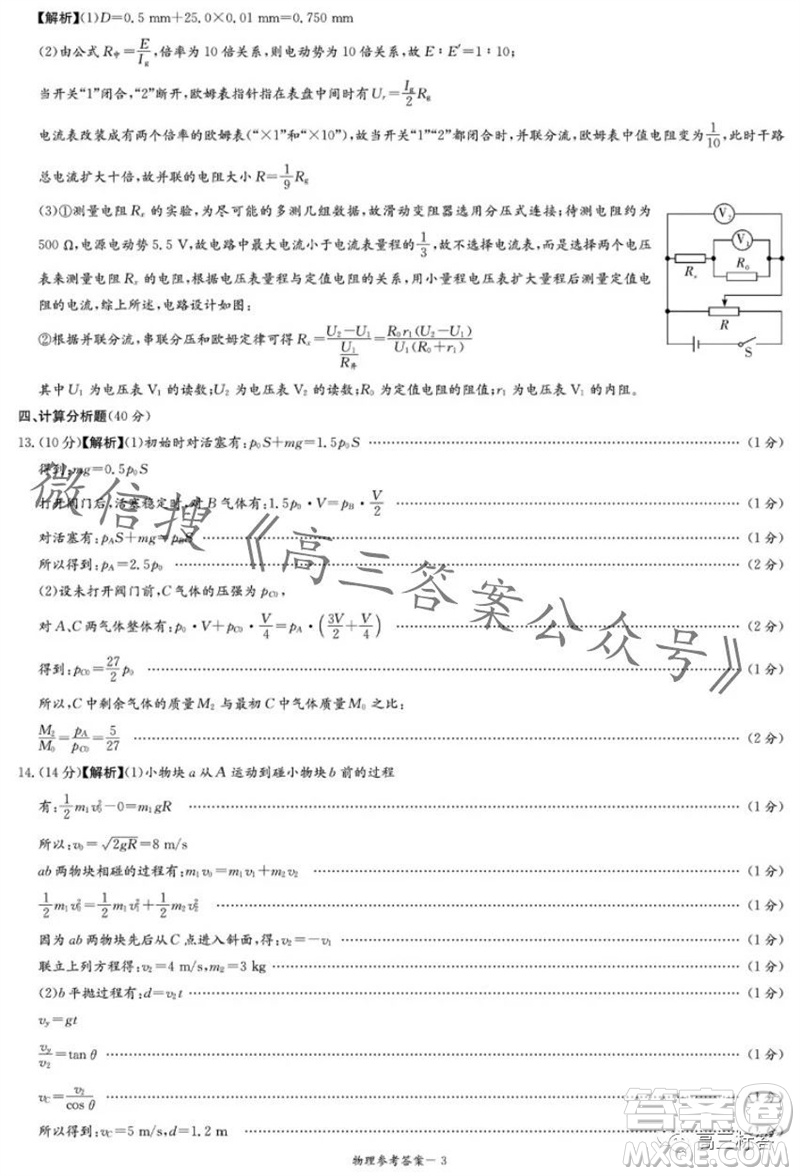 【解析】(1)D=0.5 mm+25.0×0.01 mm=0.750 mm
(2)由公式 R中=E/Ig,倍率为 10 倍关系,则电动势为 10 倍关系,故 E∶E′=1∶10;
当开关“1”闭合,“2”断开,欧姆表指针指在表盘中间时有 Ur=Ig/2 Rg
电流表改装成有两个倍率的欧姆表(“×1”和“×10”),故当开关“1”“2”都闭合时,并联分流,欧姆表中值电阻变为1/10,此时干路
总电流扩大十倍,故并联的电阻大小 R=1/9 Rg
(3)①测量电阻 Rx 的实验,为尽可能的多测几组数据,故滑动变阻器选用分压式连接;待测电阻约为
500 Ω,电源电动势 5.5 V,故电路中最大电流小于电流表量程的1/3,故不选择电流表,而选择两个电压
表来测量电阻,根据电压表量程与定值电阻的关系,用小量程电压表扩大量程后测量定值电
阻的电流,综上所述,电路设计如图:
V2
V1
Rx
R0
R
S
②根据并联分流,串联分压和欧姆定律可得 Rx=(U2-U1)/(U1/R并)=R0r1(U2-U1)/U1(R0+r1)
其中 U1 为电压表 V1 的读数;U2 为电压表 V2 的读数;R0 为定值电阻的阻值;r1 为电压表 V1 的内阻。
四、计算分析题(40 分)
13.(10 分)【解析】(1)初始时对活塞有:p0S+mg=1.5p0S (1 分)
得到:mg=0.5p0S
打开阀门后,活塞稳定时,对 B 气体有:1.5p0·V=pB·V/2 (2 分)
对活塞有:pAS+mg=pBS (1 分)
所以得到:pA=2.5p0 (2 分)
(2)设未打开阀门前,C 气体的压强为 pC0,
对 A、C 两气体整体有:p0·V+pC0·V/4=pA·(3V/2+V/4) (2 分)
得到:pC0=27/2 p0 (1 分)
所以,C 中剩余气体的质量 M2 与最初 C 中气体质量 M0 之比:
M2/M0=pA/pC0=5/27 (2 分)
14.(14 分)【解析】(1)小物块 a 从 A 运动到碰小物块 b 前的过程
有:1/2 m1v0²-0=m1gR (1 分)
所以:v0=√2gR=8 m/s
ab 两物块相碰的过程有:m1v0=m1v1+m2v2 (1 分)
1/2 m1v0²=1/2 m1v1²+1/2 m2v2² (1 分)
因为 ab 两物块先后从 C 点进入斜面,得:v2=-v1 (1 分)
联立上列方程得:v2=4 m/s,m2=3 kg (1 分)
(2)b 平抛过程有:d=v2t (1 分)
vy=gt
vy/v2=tan θ (1 分)
vC=v2/cos θ
所以:vC=5 m/s,d=1.2 m
物理参考答案－3
微信搜《高三答案公众号》
答案卷
高三标答